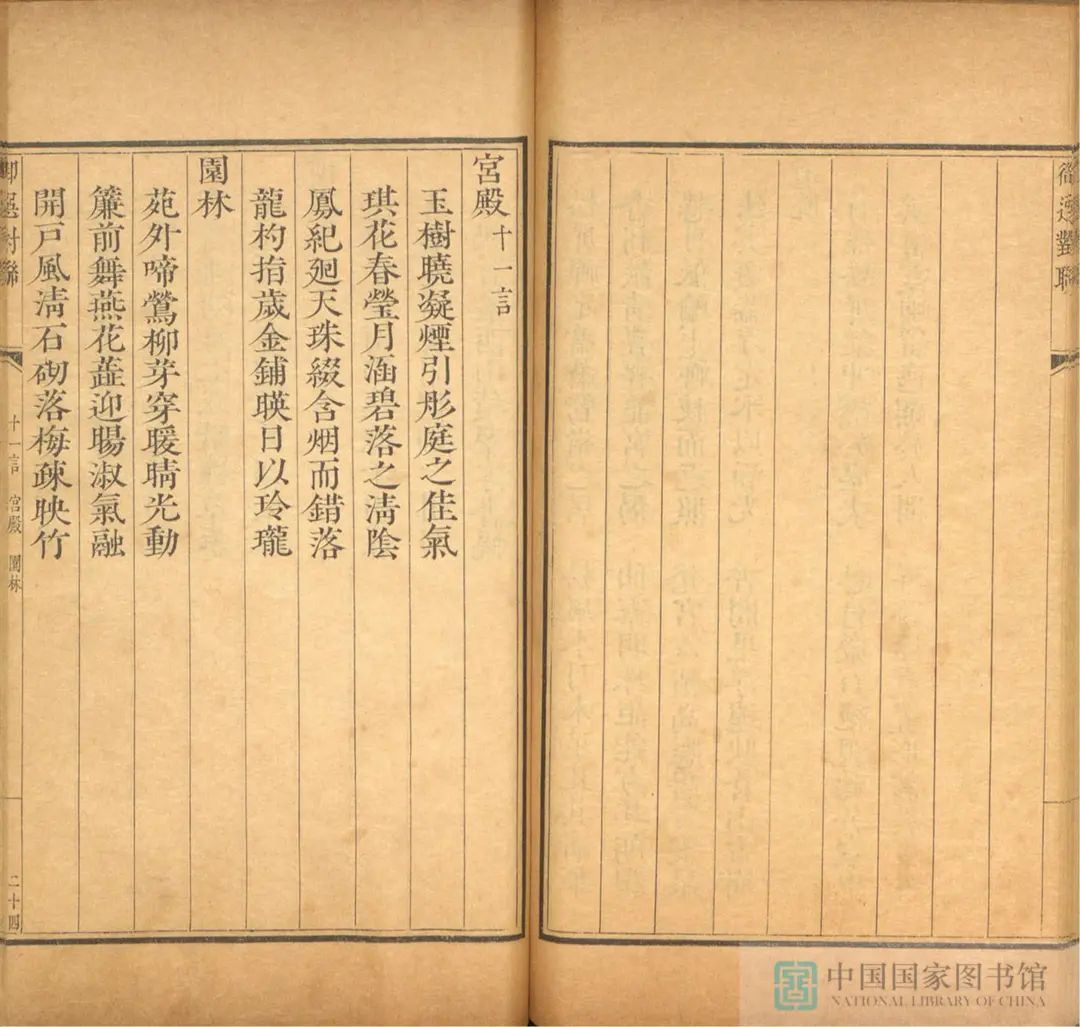 御選對聯
宮殿十一言
玉樹曉凝煙引彤庭之佳氣
琪花春瑩月涵碧落之清陰
鳳紀廻天珠綴含烟而錯落
龍杓指歲金鋪暎日以玲瓏
園林
苑外啼鶯柳芽穿暖晴光動
簾前舞燕花蘂迎暘淑氣融
開戸風清石砌落梅疎映竹
御選對聯
十一言 宮殿 園林
二十四
中国国家图书馆
NATIONAL LIBRARY OF CHINA